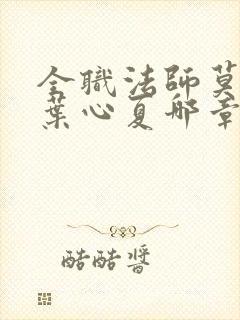 全職法師莫
葉心夏那章
酷酷醬